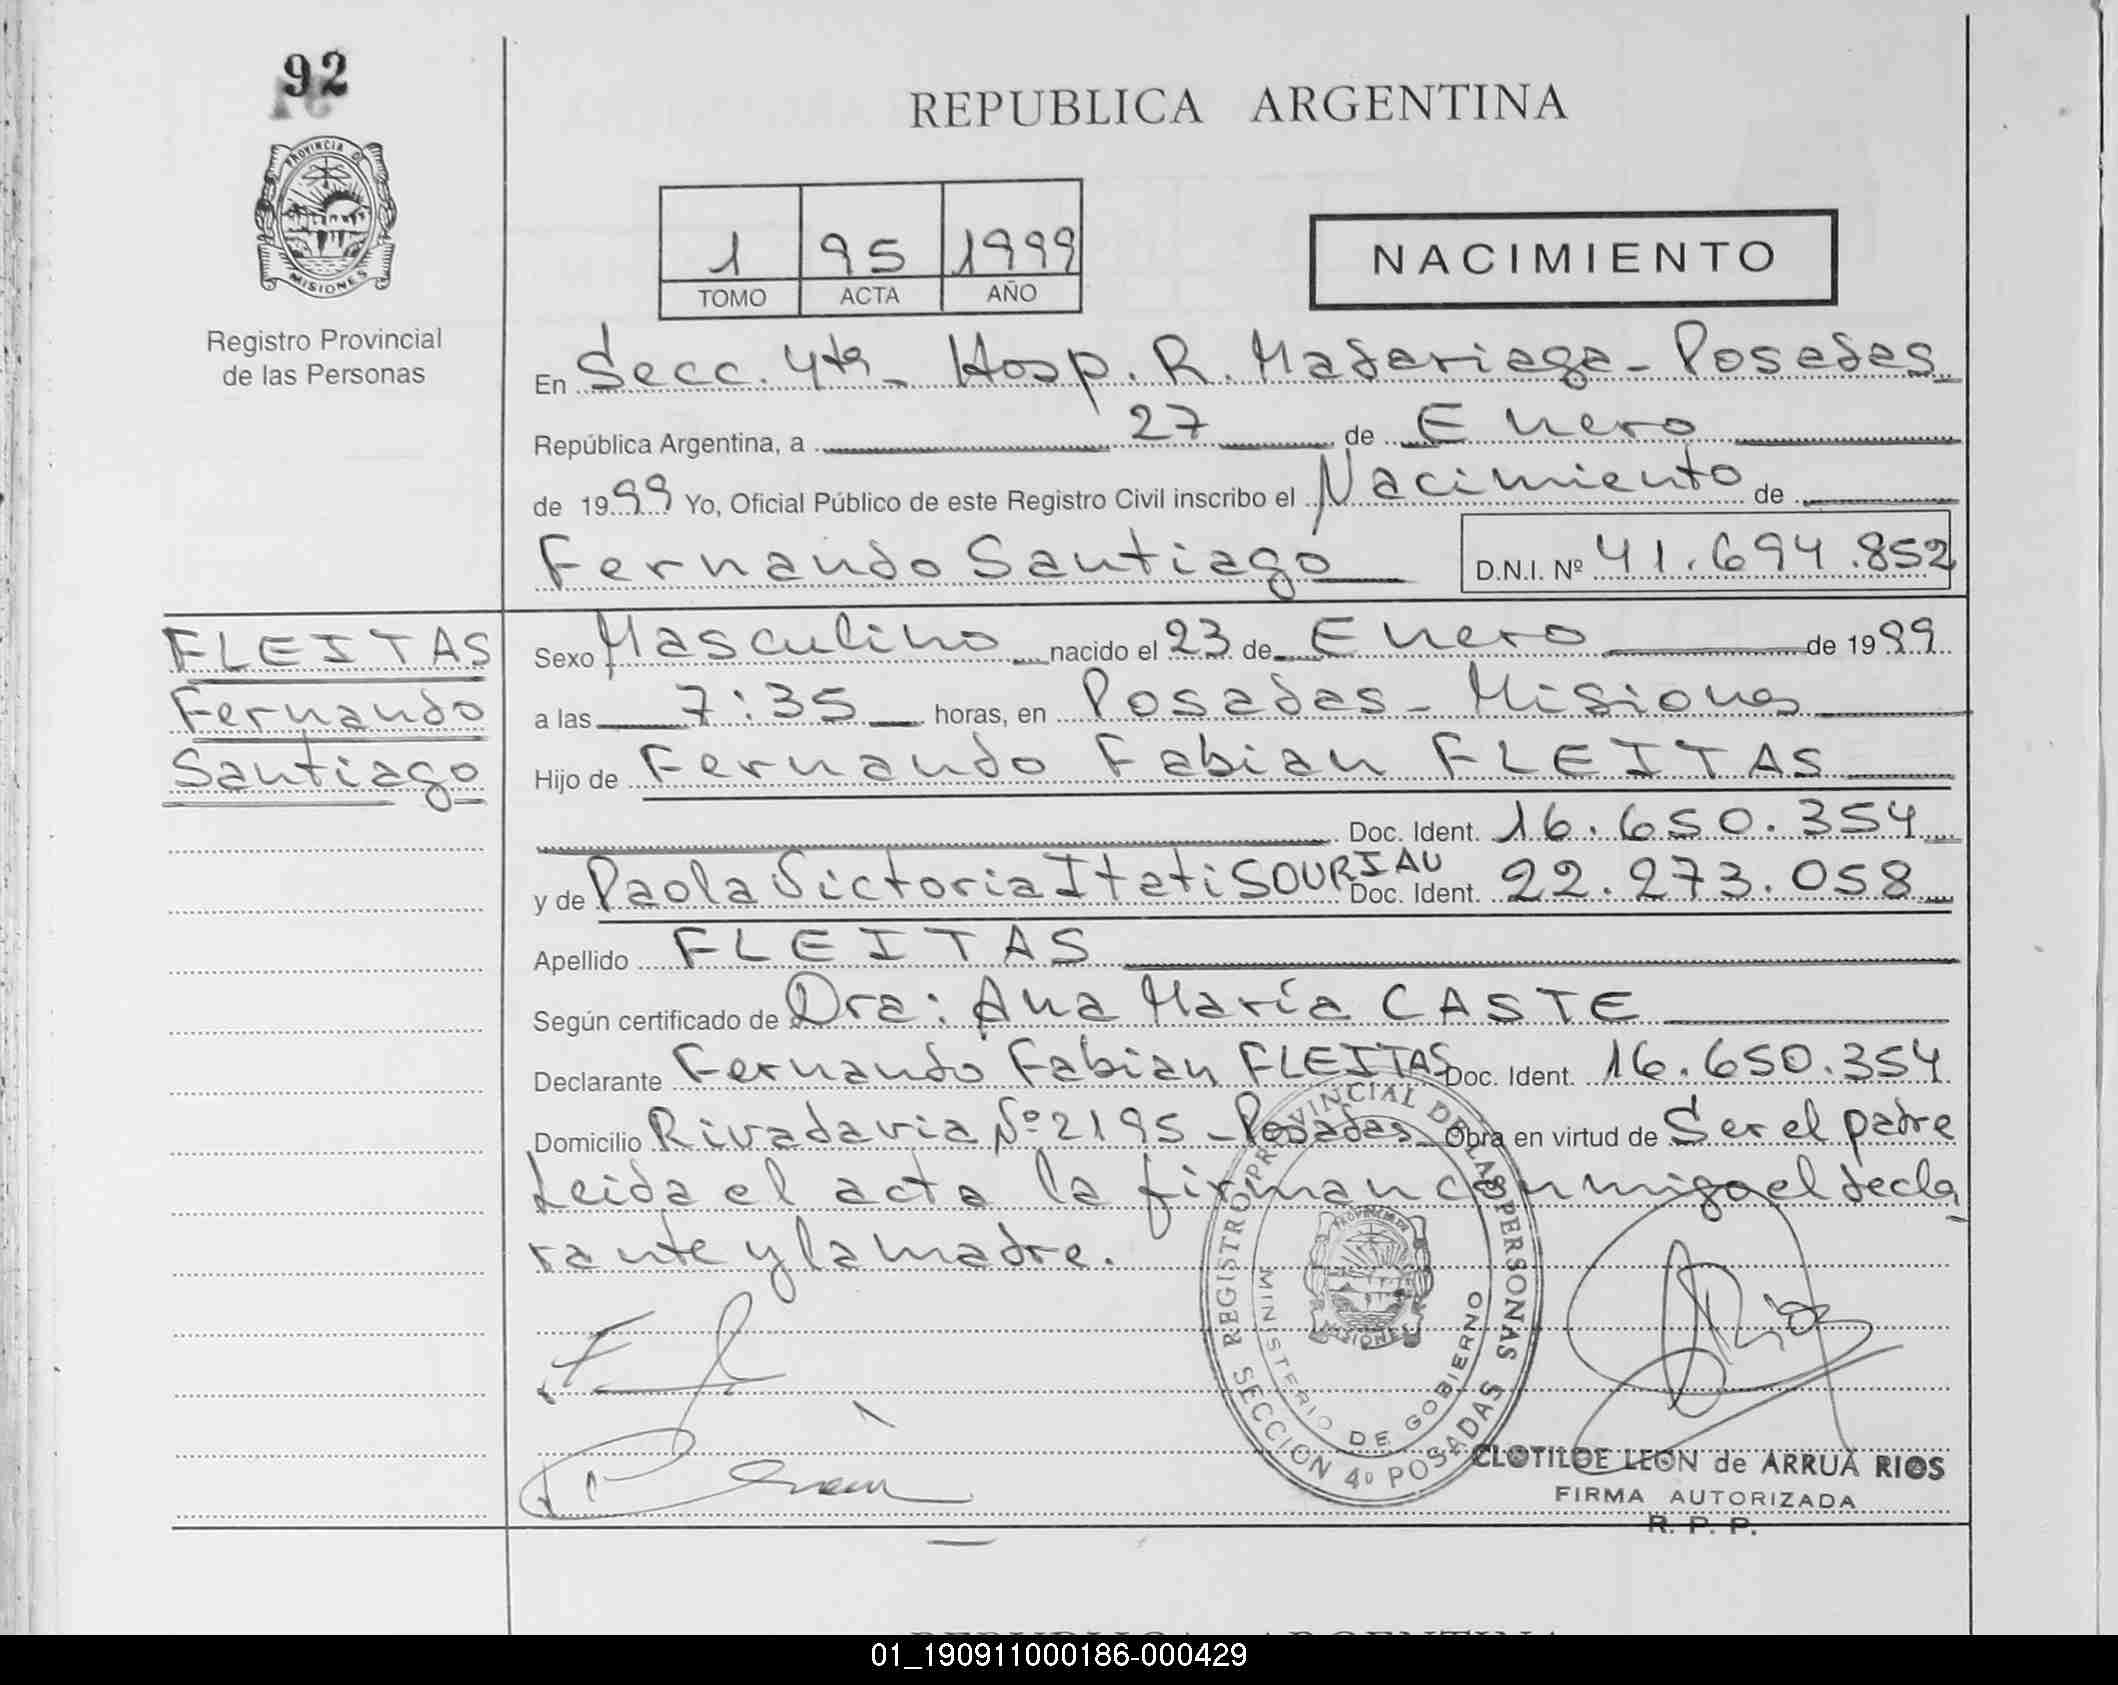 92
REPUBLICA ARGENTINA
PROVINCIA DE
MISIONES
Registro Provincial
de las Personas
1 95 1999
TOMO ACTA AÑO
NACIMIENTO
En Secc. 4ta - Hosp. R. Madariaga - Posadas
República Argentina, a 27 de Enero
de 1999 Yo, Oficial Público de este Registro Civil inscribo el Nacimiento de
Fernando Santiago D.N.I. Nº 41.694.852
FLEITAS
Fernando
Santiago
Sexo Masculino nacido el 23 de Enero de 1999
a las 7:35 horas, en Posadas - Misiones
Hijo de Fernando Fabian FLEITAS
Doc. Ident. 16.650.354
y de Paola Victoria Itati SOURIAU Doc. Ident. 22.273.058
Apellido FLEITAS
Según certificado de Dra: Ana María CASTE
Declarante Fernando Fabian FLEITAS Doc. Ident. 16.650.354
Domicilio Rivadavia Nº 2195 - Posadas - Obra en virtud de Ser el padre
Leida el acta la firman conmigo el decla
rante y la madre.
REGISTRO PROVINCIAL DE LAS PERSONAS
MINISTERIO DE GOBIERNO
PROVINCIA DE
MISIONES
SECCION 4º POSADAS
CLOTILDE LEON de ARRUA RIOS
FIRMA AUTORIZADA
R. P. P.
REPUBLICA ARGENTINA
01_190911000186-000429